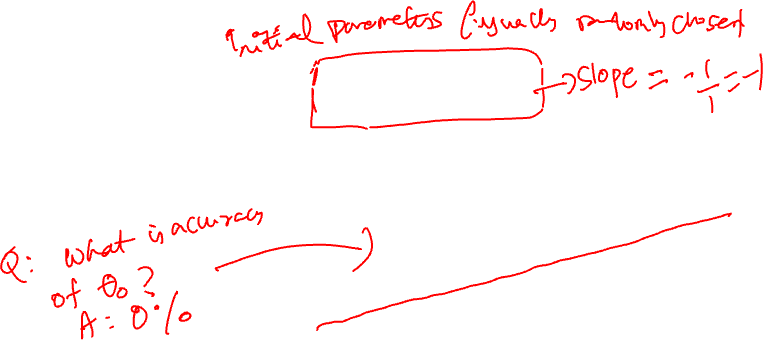 Initial parameters (usually randomly chosen)
→ slope = -1/1 = -1
Q: What is accuracy
of θ₀?
A: 0%